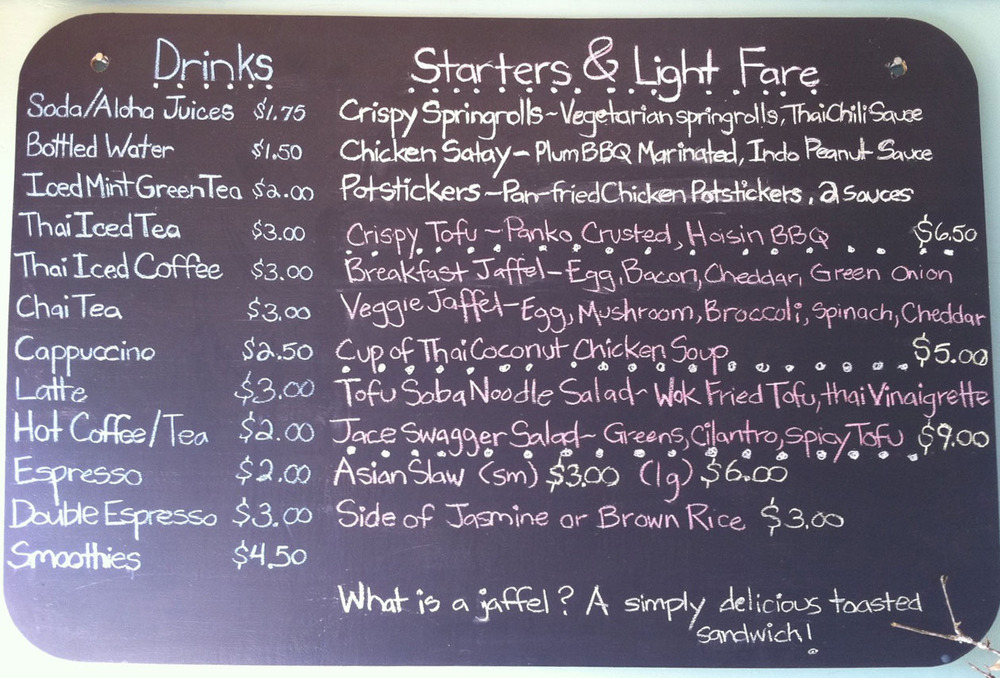 Drinks
Soda/Aloha Juices $1.75
Bottled Water $1.50
Iced Mint Green Tea $2.00
Thai Iced Tea $3.00
Thai Iced Coffee $3.00
Chai Tea $3.00
Cappuccino $2.50
Latte $3.00
Hot Coffee/Tea $2.00
Espresso $2.00
Double Espresso $3.00
Smoothies $4.50
Starters & Light Fare
Crispy Springrolls~Vegetarian springrolls, Thai Chili Sauce
Chicken Satay~Plum BBQ Marinated, Indo Peanut Sauce
Potstickers~Pan-fried Chicken Potstickers, 2 sauces
Crispy Tofu~Panko Crusted, Hoisin BBQ $6.50
Breakfast Jaffel~Egg, Bacon, Cheddar, Green Onion
Veggie Jaffel~Egg, Mushroom, Broccoli, Spinach, Cheddar
Cup of Thai Coconut Chicken Soup $5.00
Tofu Soba Noodle Salad~Wok Fried Tofu, thai Vinaigrette
Jace Swagger Salad~Greens, Cilantro, Spicy Tofu $9.00
Asian Slaw (sm) $3.00 (lg) $6.00
Side of Jasmine or Brown Rice $3.00
What is a jaffel? A simply delicious toasted
sandwich!